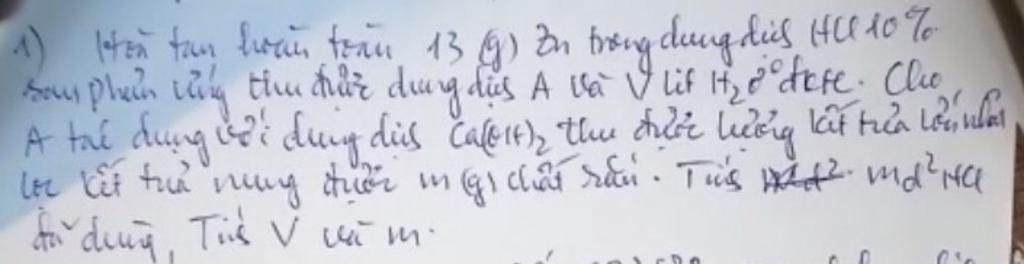 1) Hoà tan hoàn toàn 13 (g) Zn trong dung dịch HCl 10%
sau phản ứng thu được dung dịch A và V lít H₂ ở đktc. Cho
A tác dụng với dung dịch Ca(OH)₂ thu được lượng kết tủa lớn nhất
lọc kết tủa nung được m (g) chất rắn. Tính md² HCl
đã dùng, Tính V và m.